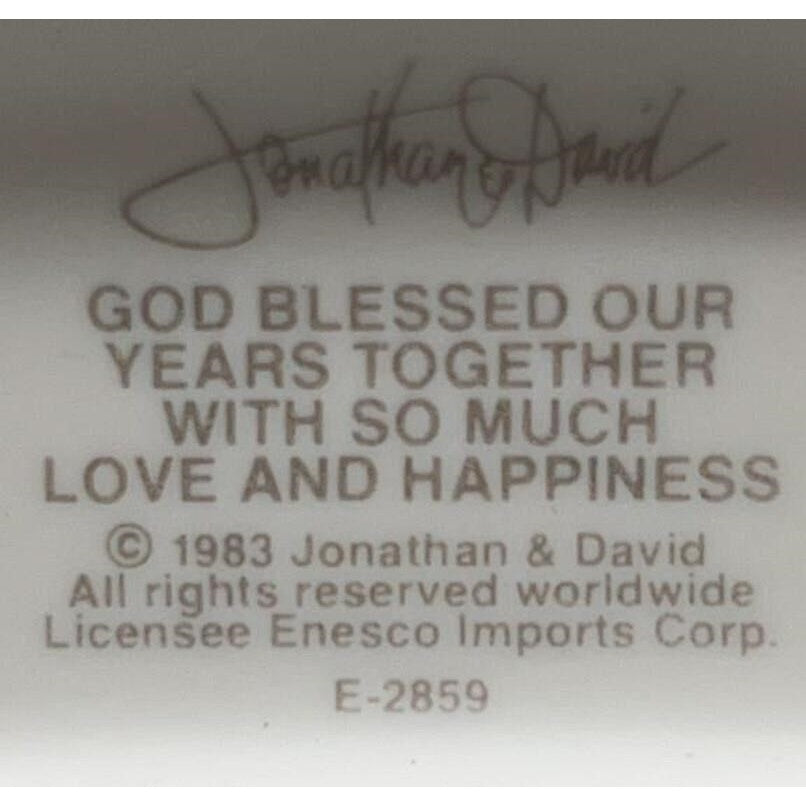 Jonathan & David
GOD BLESSED OUR
YEARS TOGETHER
WITH SO MUCH
LOVE AND HAPPINESS
© 1983 Jonathan & David
All rights reserved worldwide
Licensee Enesco Imports Corp.
E-2859